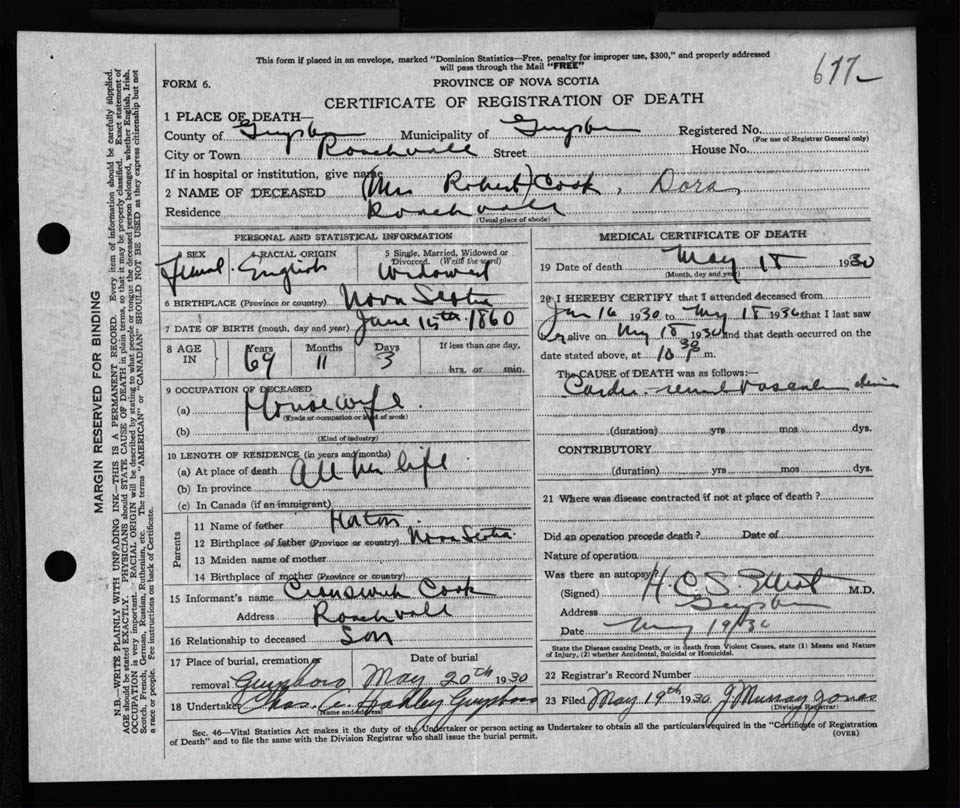 This form if placed in an envelope, marked "Dominion Statistics—Free, penalty for improper use, $300," and properly addressed
will pass through the Mail "FREE"
677
FORM 6.
PROVINCE OF NOVA SCOTIA
CERTIFICATE OF REGISTRATION OF DEATH
1 PLACE OF DEATH—
County of Guysboro Municipality of Guysboro Registered No.
(For use of Registrar General only)
City or Town Roachvale Street House No.
If in hospital or institution, give name
2 NAME OF DECEASED (Mrs Robert) Cook, Dora
Residence Roachvale
(Usual place of abode)
PERSONAL AND STATISTICAL INFORMATION
3 SEX 4 RACIAL ORIGIN 5 Single, Married, Widowed or
Divorced. (Write the word)
Female English Widowed
6 BIRTHPLACE (Province or country) Nova Scotia
7 DATE OF BIRTH (month, day and year) June 15th 1860
8 AGE IN Years Months Days If less than one day,
69 11 3
hrs. or min.
9 OCCUPATION OF DECEASED
(a) Housewife
(Trade or occupation or kind of work)
(b)
(Kind of industry)
10 LENGTH OF RESIDENCE (in years and months)
(a) At place of death All her life
(b) In province
(c) In Canada (if an immigrant)
Parents
11 Name of father
12 Birthplace of father (Province or country) Nova Scotia
13 Maiden name of mother
14 Birthplace of mother (Province or country)
15 Informant's name Cook
Address Roachvale
16 Relationship to deceased Son
17 Place of burial, cremation or Date of burial
removal Guysboro May 20th 1930
18 Undertaker Chas. A. Hadley Guysboro
(Name and address)
MEDICAL CERTIFICATE OF DEATH
19 Date of death May 18 1930
(Month, day and year)
20 I HEREBY CERTIFY that I attended deceased from
Jan 16 1930 to May 18 1930 that I last saw
her alive on May 18 1930 and that death occurred on the
date stated above, at 10 30 P m.
The CAUSE of DEATH was as follows:—
Cardio-renal vascular
(duration) yrs mos dys.
CONTRIBUTORY
(duration) yrs mos dys.
21 Where was disease contracted if not at place of death?
Did an operation precede death? Date of
Nature of operation
Was there an autopsy?
(Signed) H. C. S. Elliot M.D.
Address Guysboro
Date May 19/30
State the Disease causing Death, or in death from Violent Causes, state (1) Means and Nature
of Injury, (2) whether Accidental, Suicidal or Homicidal.
22 Registrar's Record Number
23 Filed May 19th 1930 J Murray Jones
(Division Registrar)
Sec. 46—Vital Statistics Act makes it the duty of the Undertaker or person acting as Undertaker to obtain all the particulars required in the "Certificate of Registration
of Death" and to file the same with the Division Registrar who shall issue the burial permit.
(OVER)
MARGIN RESERVED FOR BINDING
N.B.—WRITE PLAINLY WITH UNFADING INK—THIS IS A PERMANENT RECORD. Every item of information should be carefully supplied.
AGE should be stated EXACTLY. PHYSICIANS should STATE CAUSE OF DEATH in plain terms, so that it may be properly classified. Exact statement of
OCCUPATION is very important. RACIAL ORIGIN will be described by stating to what people or tongue the deceased person belonged, whether English, Irish,
Scotch, French, German, Russian, Ruthenian, etc. The terms "AMERICAN" or "CANADIAN" SHOULD NOT BE USED as they express citizenship but not
a race or people. Fee instructions on back of Certificate.